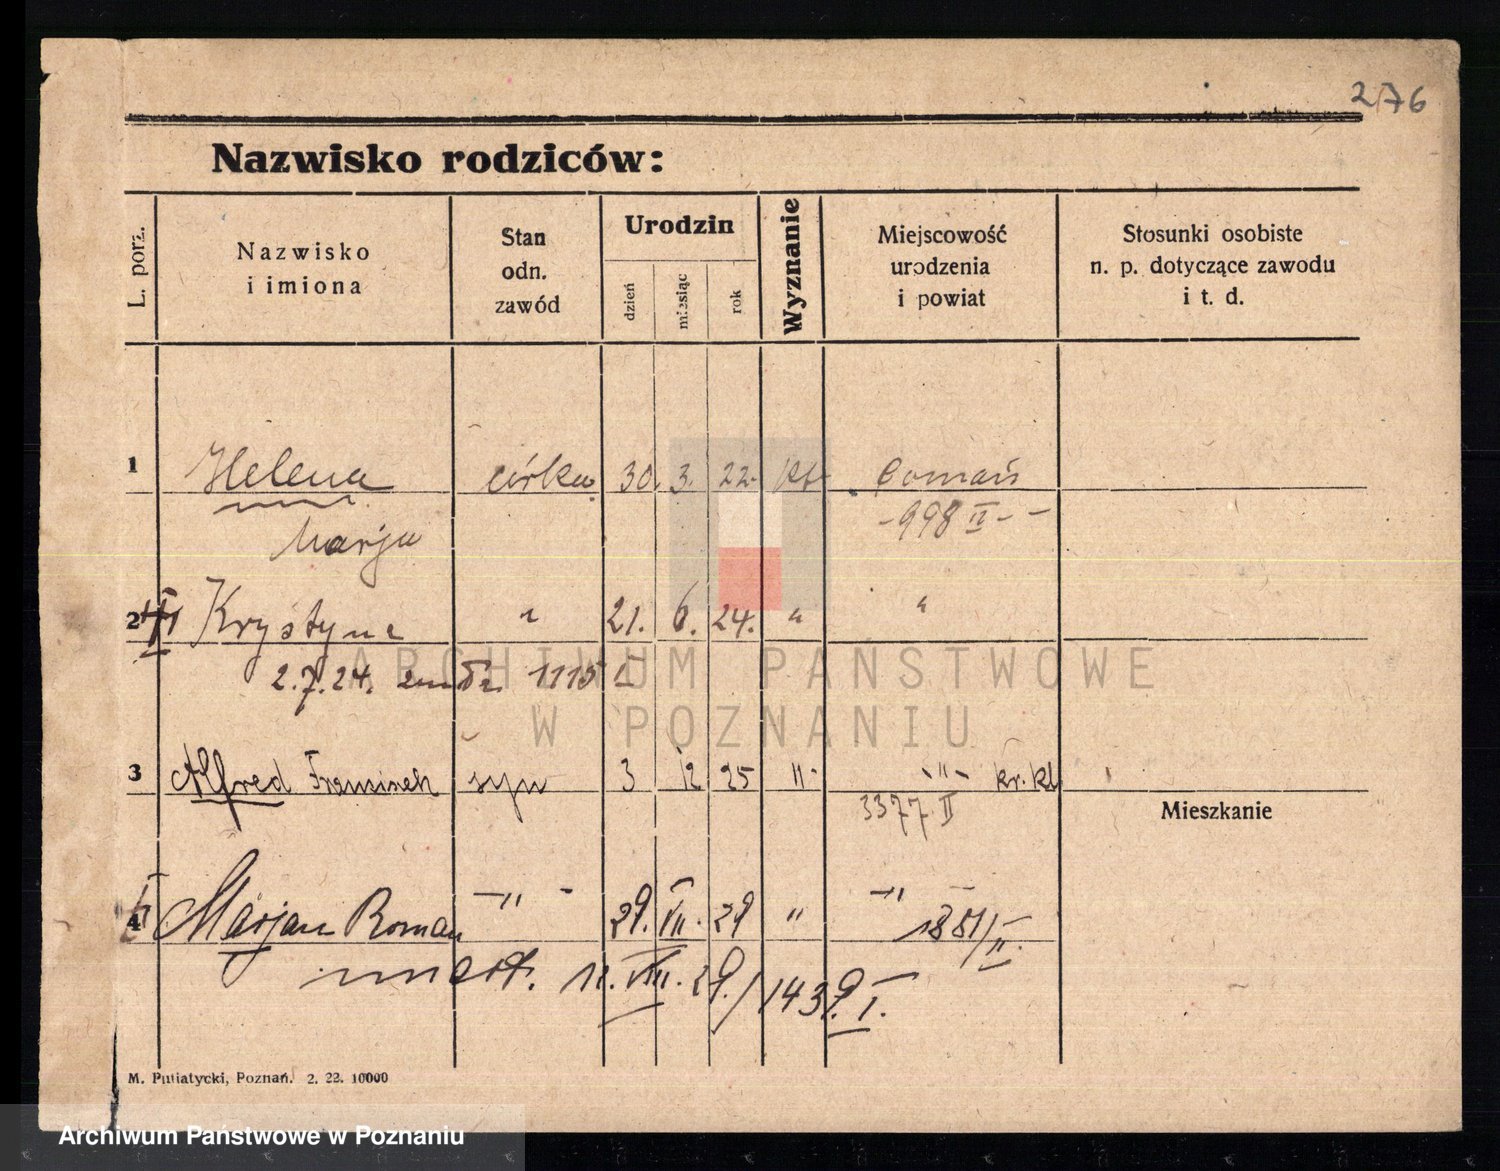 276
Nazwisko rodziców:
L. porz.
Nazwisko
i imiona
Stan
odn.
zawód
Urodzin
dzień
miesiąc
rok
Wyznanie
Miejscowość
urodzenia
i powiat
Stosunki osobiste
n. p. dotyczące zawodu
i t. d.
1 Helena córka 30. 3. 22. kt Poznań
Marja - 998 II - -
2 Krystyna " 21. 6. 24. " "
2.7.24. 1115 I
ARCHIWUM PAŃSTWOWE
W POZNANIU
3 Alfred Franciszek syn 3 12 25 " - " - kr. kl
3377 II
Mieszkanie
4 Marjan Roman - " - 29. VII. 29 " - " -
1881/II.
umarł. 12. VIII. 29./1439. I.
M. Putiatycki, Poznań. 2. 22. 10000
Archiwum Państwowe w Poznaniu